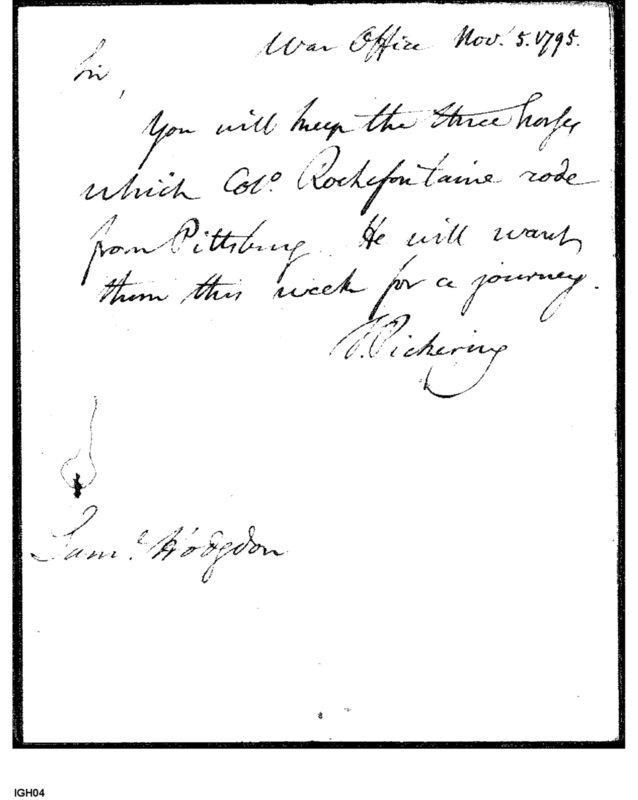 War Office Nov.r 5. 1795.
Sir,
You will keep the three horses
which Colo. Rochefontaine rode
from Pittsburg. He will want
them this week for a journey.
T. Pickering
Saml. Hodgdon
IGH04